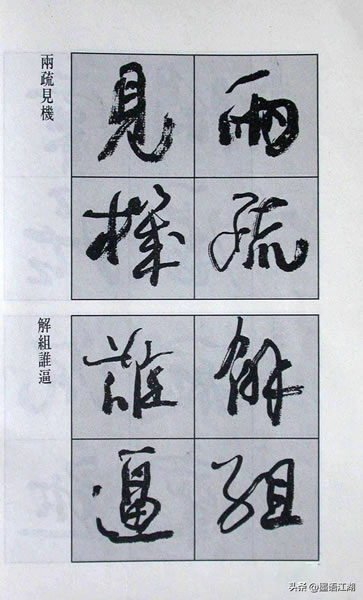 兩疏見機
兩疏
見機
解組誰逼
解組
誰逼
头条@国语江湖